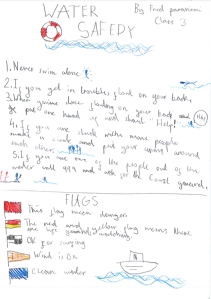 WATER
SAFEDY
By Fred
Class 3
1. Never swim alone
2. If you get in troubles float on your back.
3. When you're done floating on your back
put one hand up and shout Help!
4. If you are stuck with more people
make a circle and put your arms around
each others
5. If you see one of the people out of the
water call 999 and ask for the Coast guard.
FLAGS
This flag mean danger
The red and yellow flag means there
are life guards watching.
OK for surfing
Wind is OK
Clean water